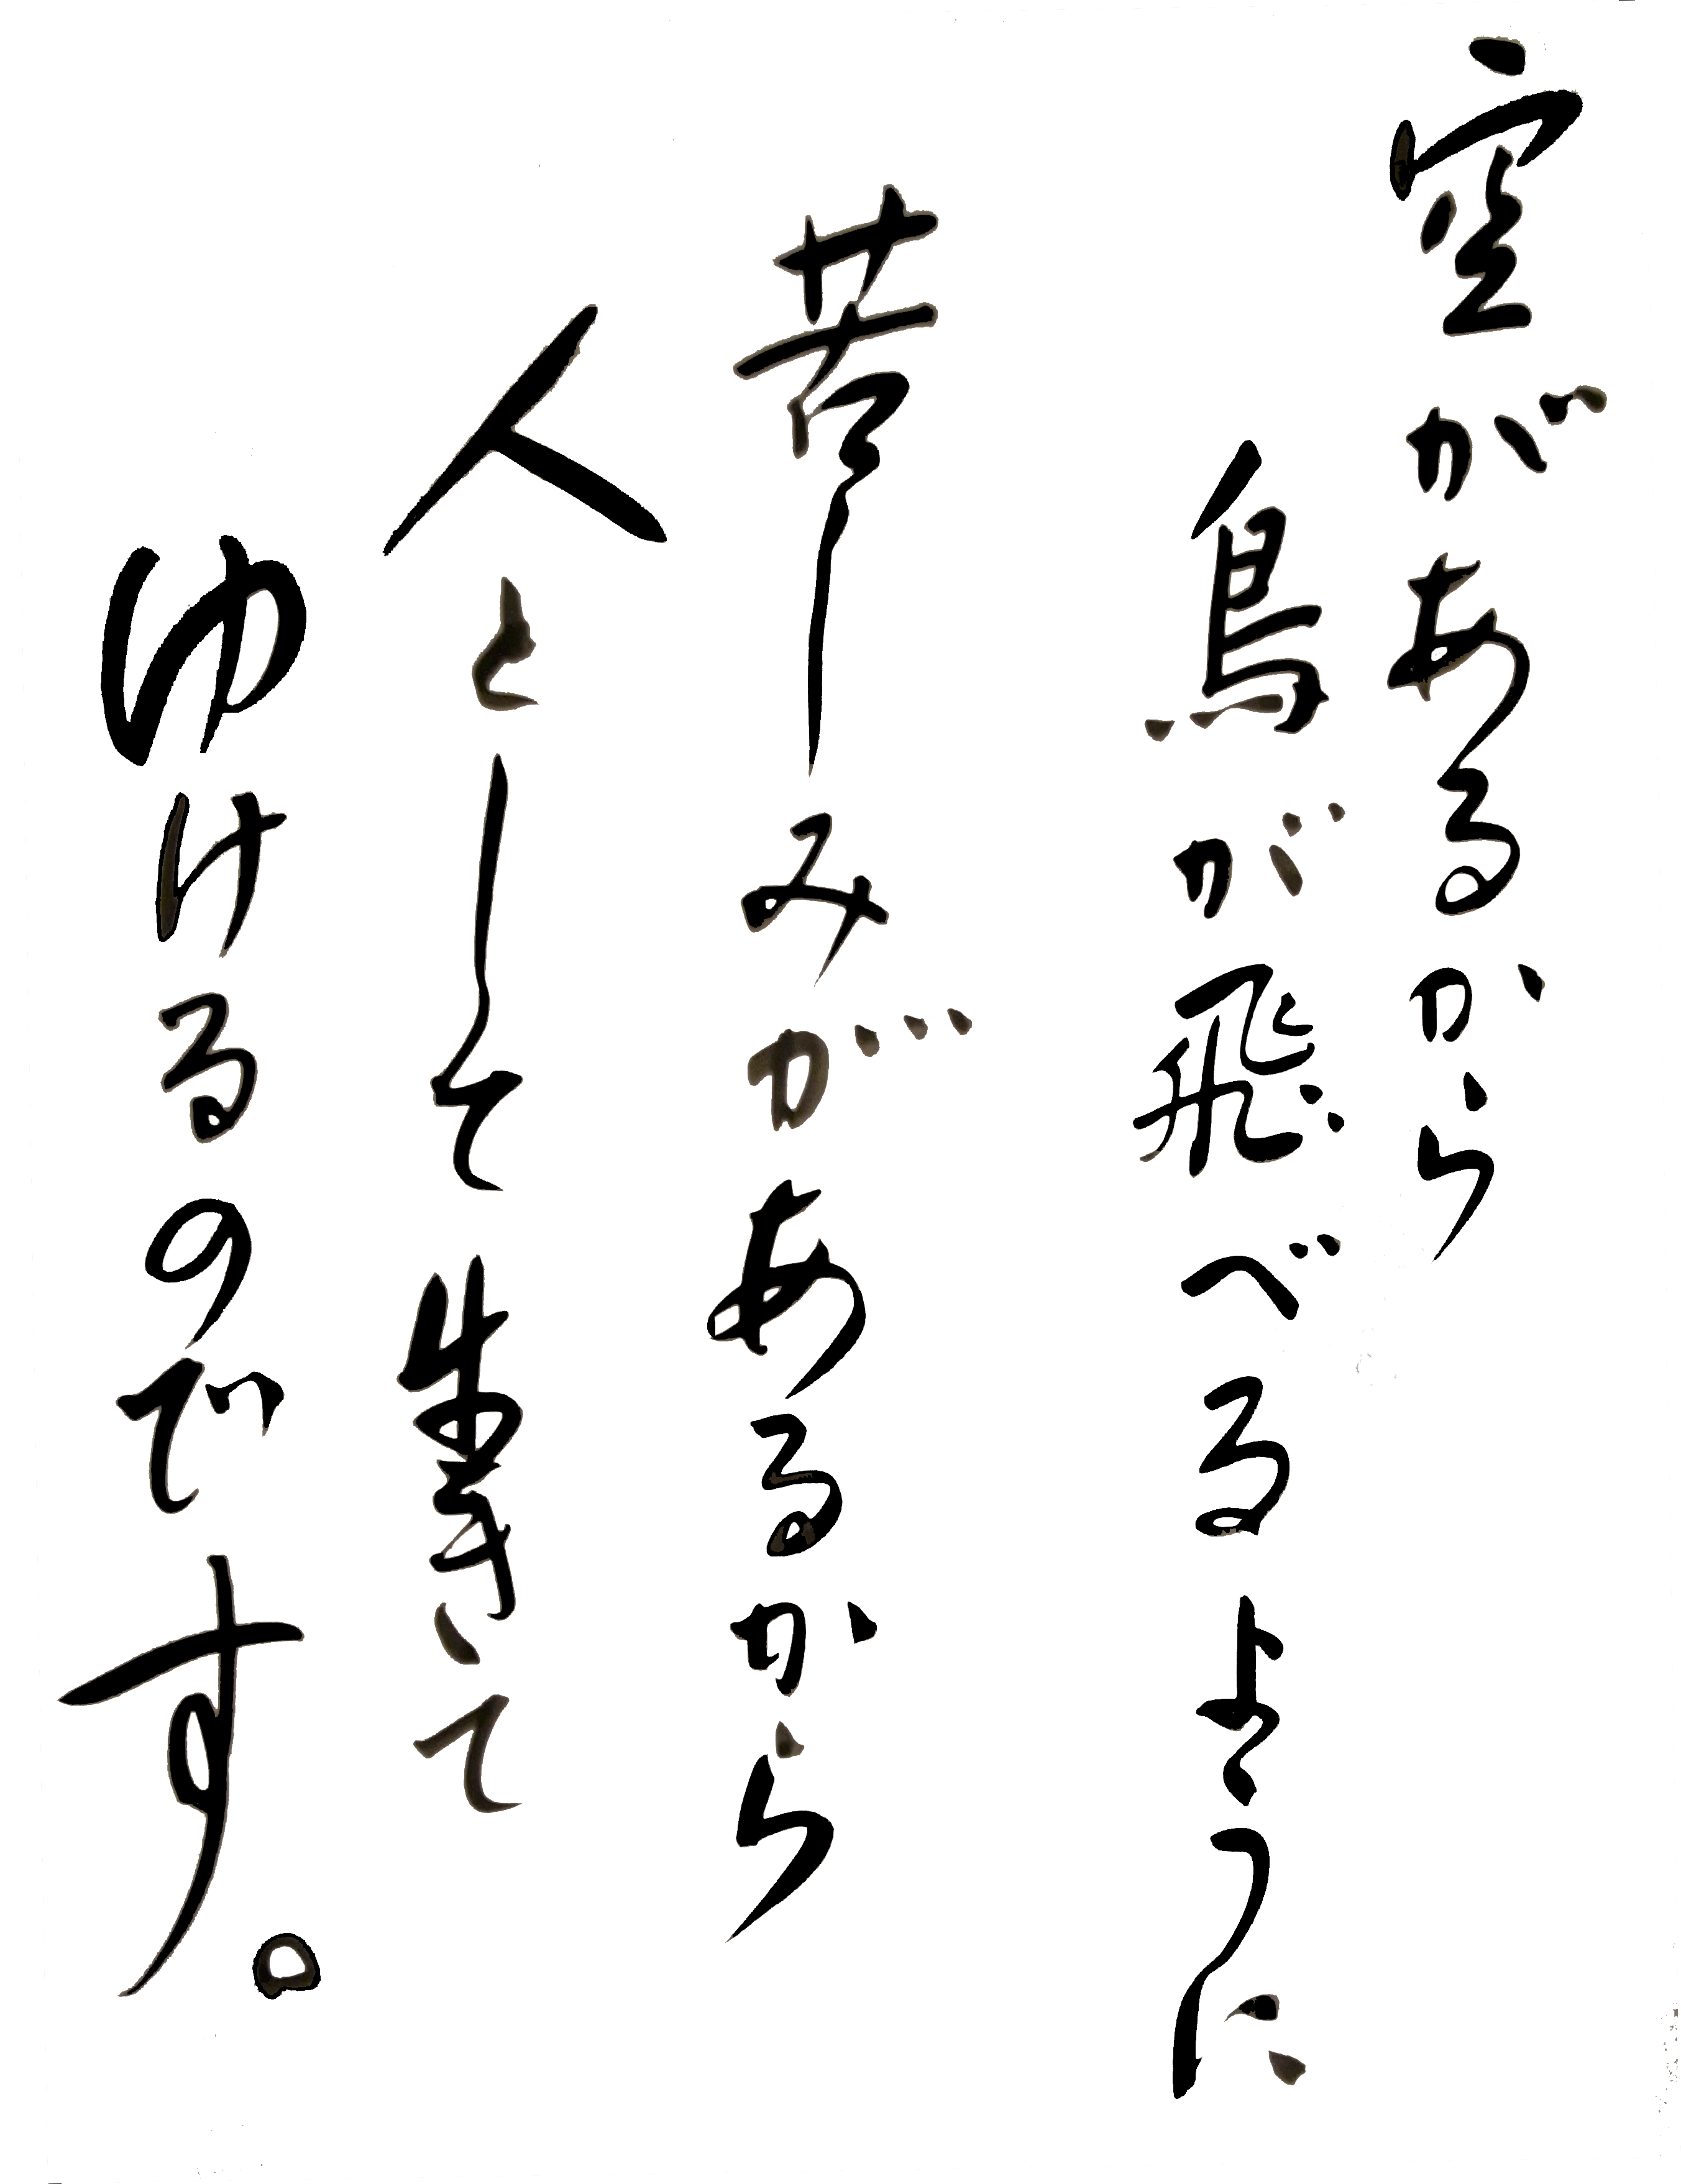 空があるから
鳥が飛べるように
苦しみがあるから
人として生きて
ゆけるのです。